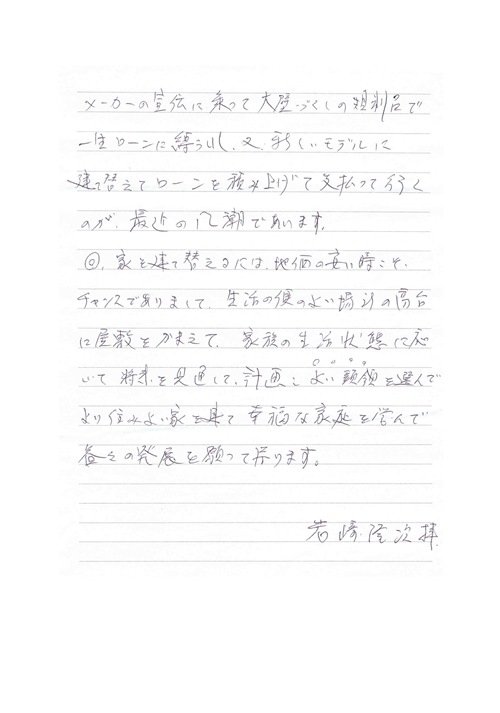 メーカーの宣伝に乗って大壁づくしの規制品で
一生ローンに縛られ、又、新しいモデルに
建て替えてローンを積み上げて支払って行く
のが、最近の風潮であります。
◎、家を建て替えるには、地価の安い時こそ、
チャンスでありまして、生活の便のよい場所の高台
に屋敷をかまえて、家族の生活状態に応
いて将来を見通して、計画しよい頭領を選んで
より住みよい家を建て幸福な家庭を営んで
益々の発展を願って居ります。
岩崎隆次拝